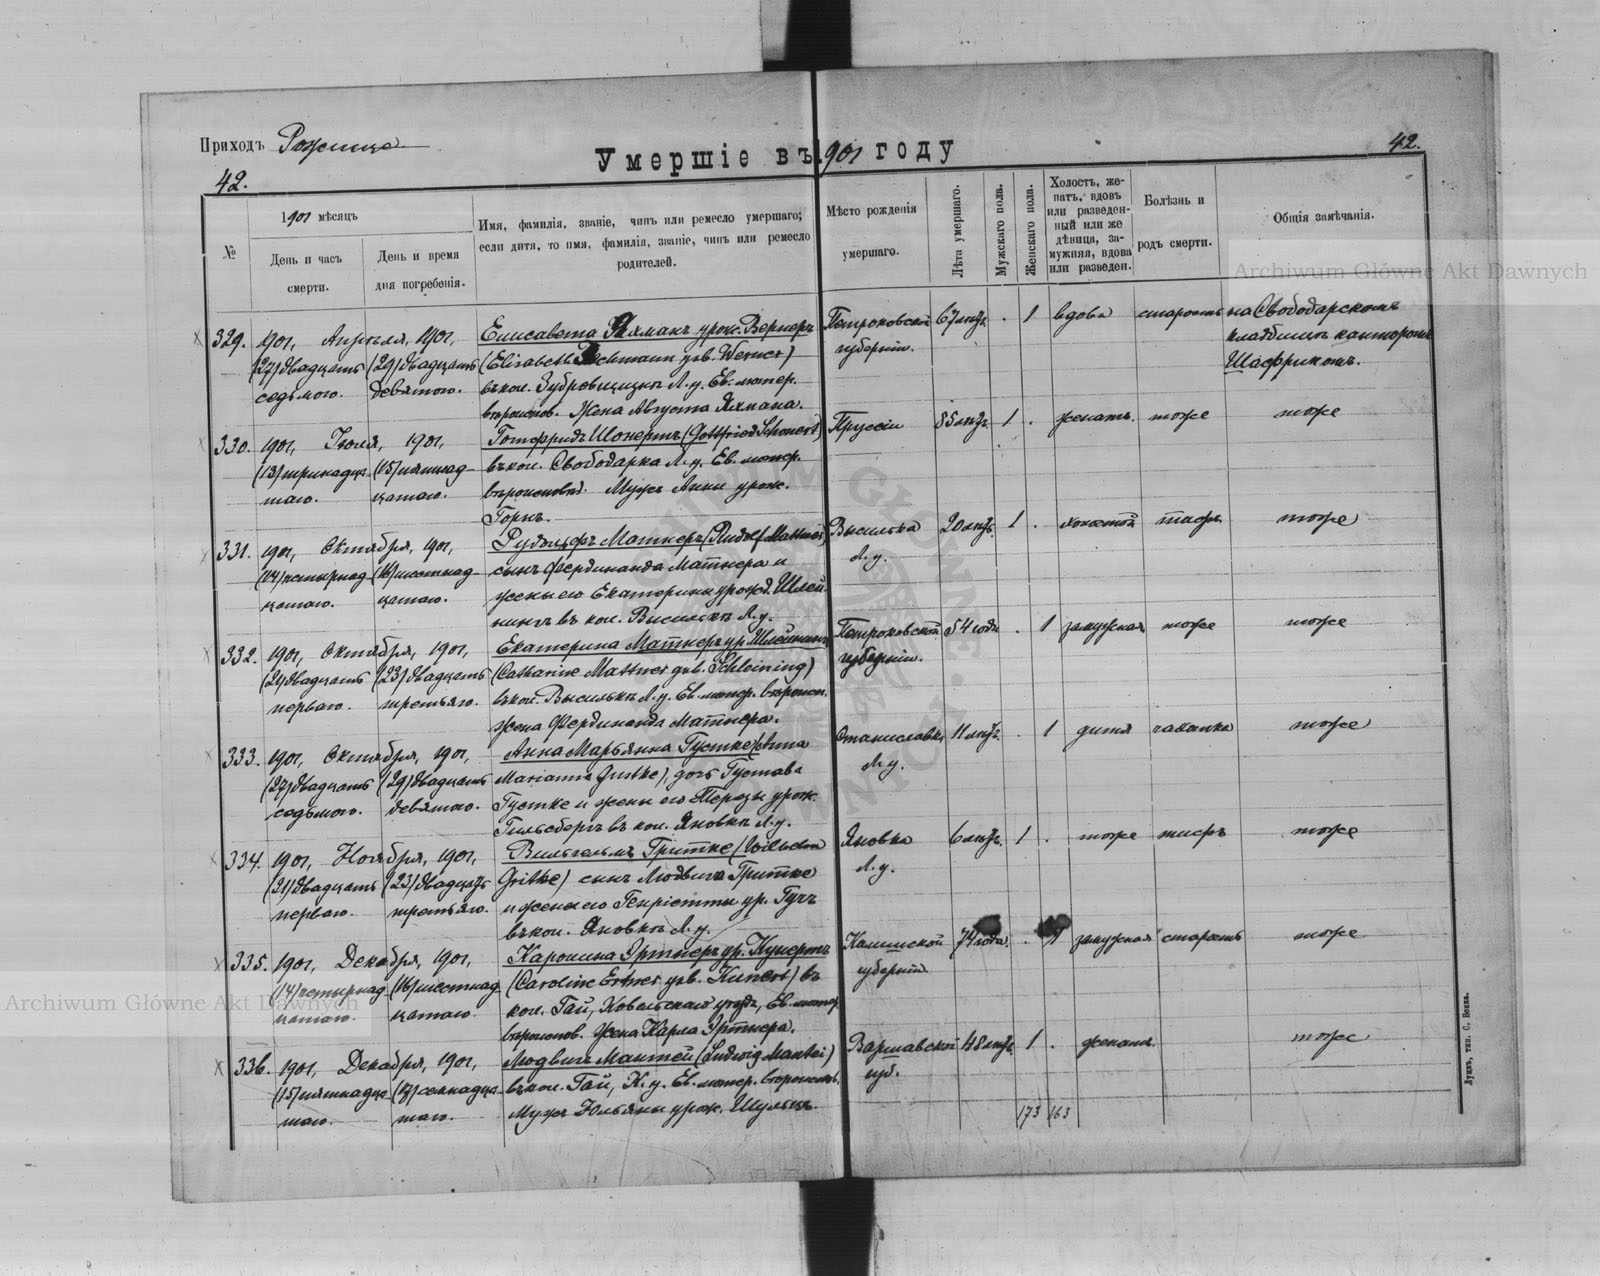 Приходъ Рожище
Умершіе въ 1901 году
42.
42.
№
1901 мѣсяцъ
День и часъ смерти.
День и время дня погребенія.
Имя, фамилія, званіе, чинъ или ремесло умершаго;
если дитя, то имя, фамилія, званіе, чинъ или ремесло
родителей.
Мѣсто рожденія
умершаго.
Лѣта умершаго.
Мужскаго пола.
Женскаго пола.
Холостъ, же-
натъ, вдовъ
или разведен-
ный или же
дѣвица, за-
мужняя, вдова
или разведен.
Болѣзнь и
родъ смерти.
Общія замѣчанія.
329. 1901, Апрѣля, 1901, Елисавета Яхманъ урож. Вернеръ Петроковской 67 лѣтъ. . 1 вдова старость на Свободарскомъ
(27) двадцать (29) двадцать (Elisabeth Jachmann geb. Werner) губерніи. кладбищѣ канторомъ
седьмого. девятого. въ кол. Зубровщизнѣ Л. у. Ев. лютер. Шаффрикомъ.
вѣроисповѣд. Жена Августа Яхмана.
330. 1901, Іюля, 1901, Готфридъ Шонертъ (Gottfried Schonert) Пруссіи 85 лѣтъ 1 . женатъ. тоже тоже
(13) тринадца- (15) пятнад- въ кол. Свободарка Л. у. Ев. лютер.
таго. цатаго. вѣроисповѣд. Мужъ Анны урож.
Горнъ.
331. 1901, Октября, 1901, Рудольфъ Матнеръ (Rudolf Mattner) Высилька 20 лѣтъ 1 . холостой тифъ тоже
(14) четырнад- (16) шестнад- сынъ Фердинанда Матнера и Л. у.
цатаго. цатаго. жены его Екатерины урожд. Шлей-
нингъ въ кол. Высилькѣ Л. у.
332. 1901, Октября, 1901, Екатерина Матнеръ ур. Шлейнингъ Петроковской 54 года . 1 замужняя тоже тоже
(21) двадцать (23) двадцать (Catharine Mattner geb. Schleining) губерніи.
перваго. третьяго. въ кол. Высилькѣ Л. у. Ев. лютер. вѣроисп.
жена Фердинанда Матнера.
333. 1901, Октября, 1901, Анна Марьянна Густке (Anna Станиславка 11 лѣтъ. . 1 дитя чахотка тоже
(27) двадцать (29) двадцать Marianna Gustke), дочь Густава Л. у.
седьмого. девятого. Густке и жены его Терезы урож.
Гильсбергъ въ кол. Яновкѣ Л. у.
334. 1901, Ноября, 1901, Вильгельмъ Гритке (Wilhelm Яновка 6 лѣтъ. 1 . тоже тифъ тоже
(21) двадцать (23) двадцать Gritke) сынъ Людвига Гритке Л. у.
перваго. третьяго. и жены его Генріетты ур. Гучъ
въ кол. Яновкѣ Л. у.
335. 1901, Декабря, 1901, Каролина Эртнеръ ур. Кунертъ Калишской 74 года. . 1 замужняя старость тоже
(14) четырнад- (16) шестнад- (Caroline Ertner geb. Kunert) въ губерніи
цатаго. цатаго. кол. Гай, Ковельскаго уѣзда, Ев. лютер.
вѣроисповѣд. Жена Карла Эртнера.
336. 1901, Декабря, 1901, Людвигъ Мантей (Ludwig Mantei) Варшавской 48 лѣтъ. 1 . женатъ. тоже
(15) пятнадца- (17) семнадца- въ кол. Гай, К. у. Ев. лютер. вѣроисповѣд. губ.
таго. таго. Мужъ Юльяны урож. Шульцъ.
173 163
Луцкъ, тип. С. Бонка.
Archiwum Główne Akt Dawnych
Archiwum Główne Akt Dawnych